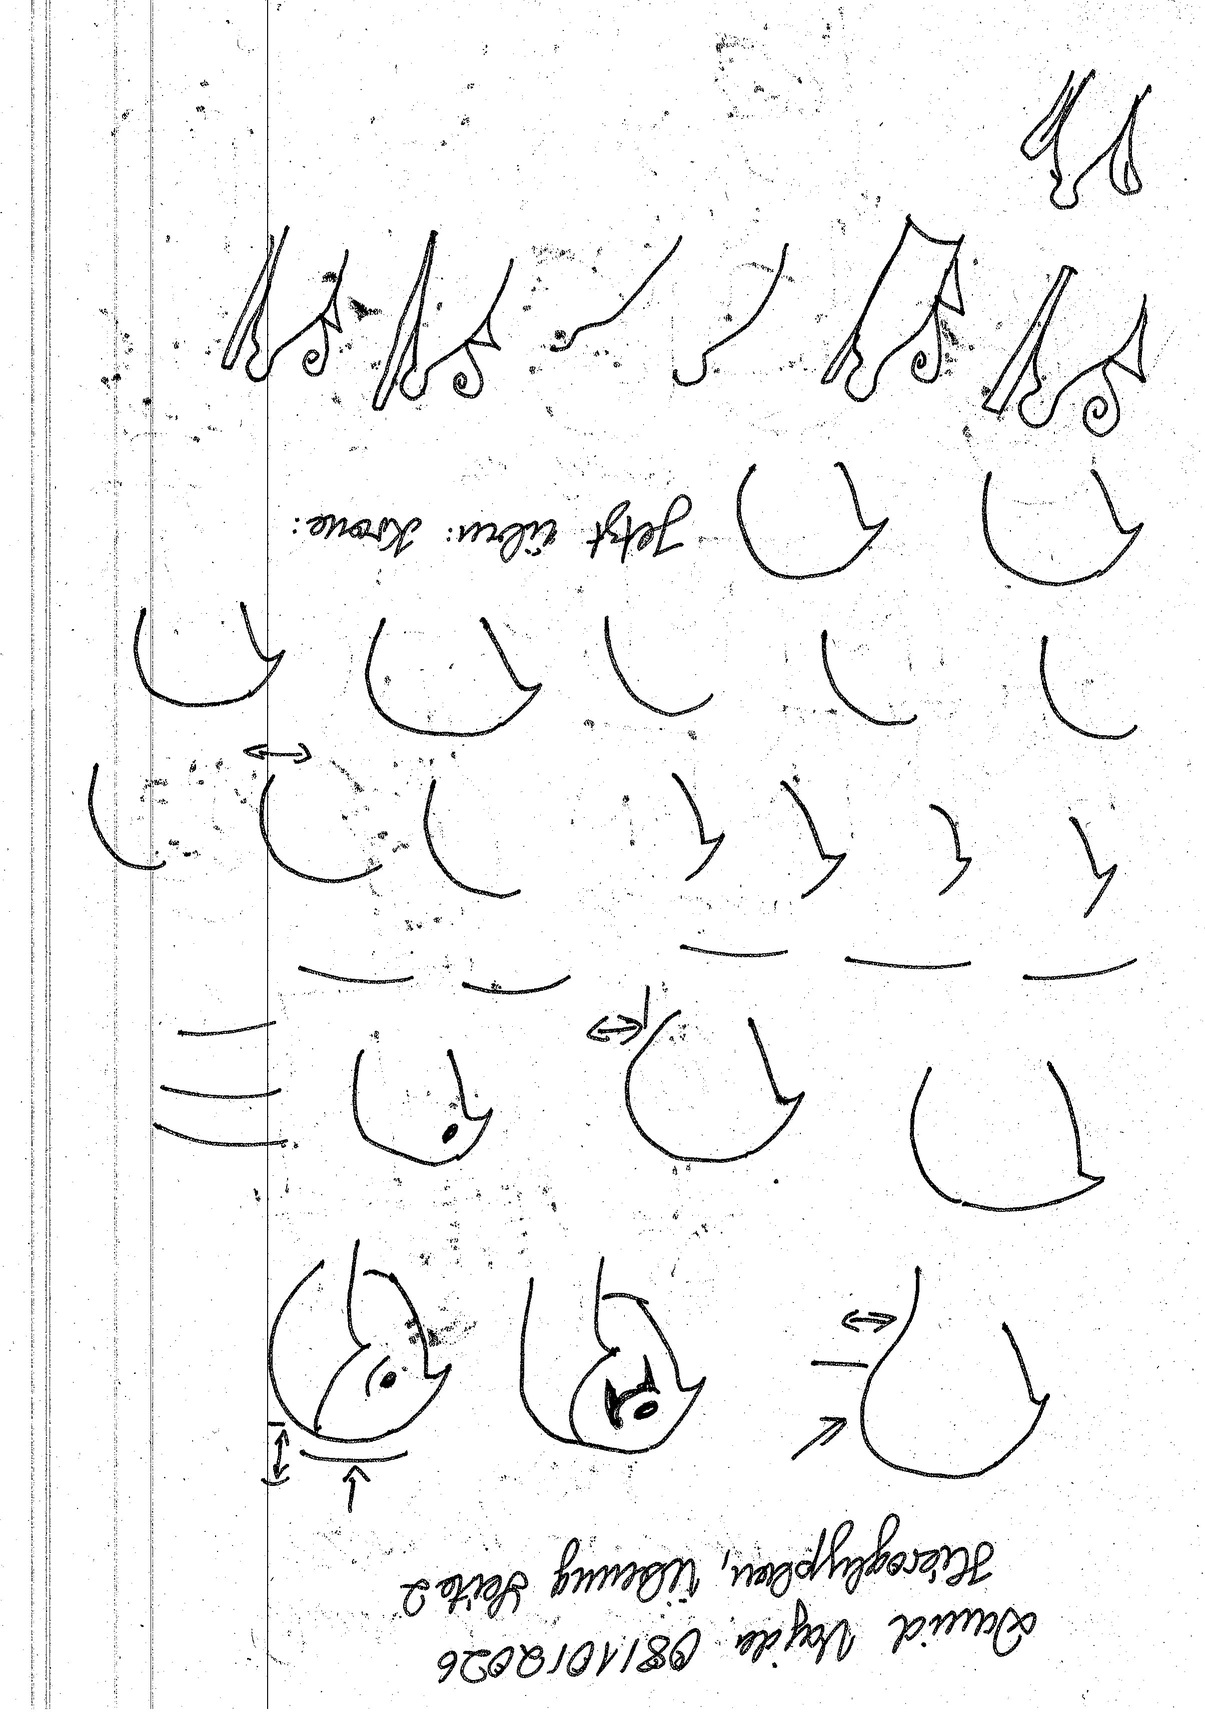 David Vajda 08/10/2026
Hieroglyphen, Übung Seite 2
Jetzt üben: Krone: